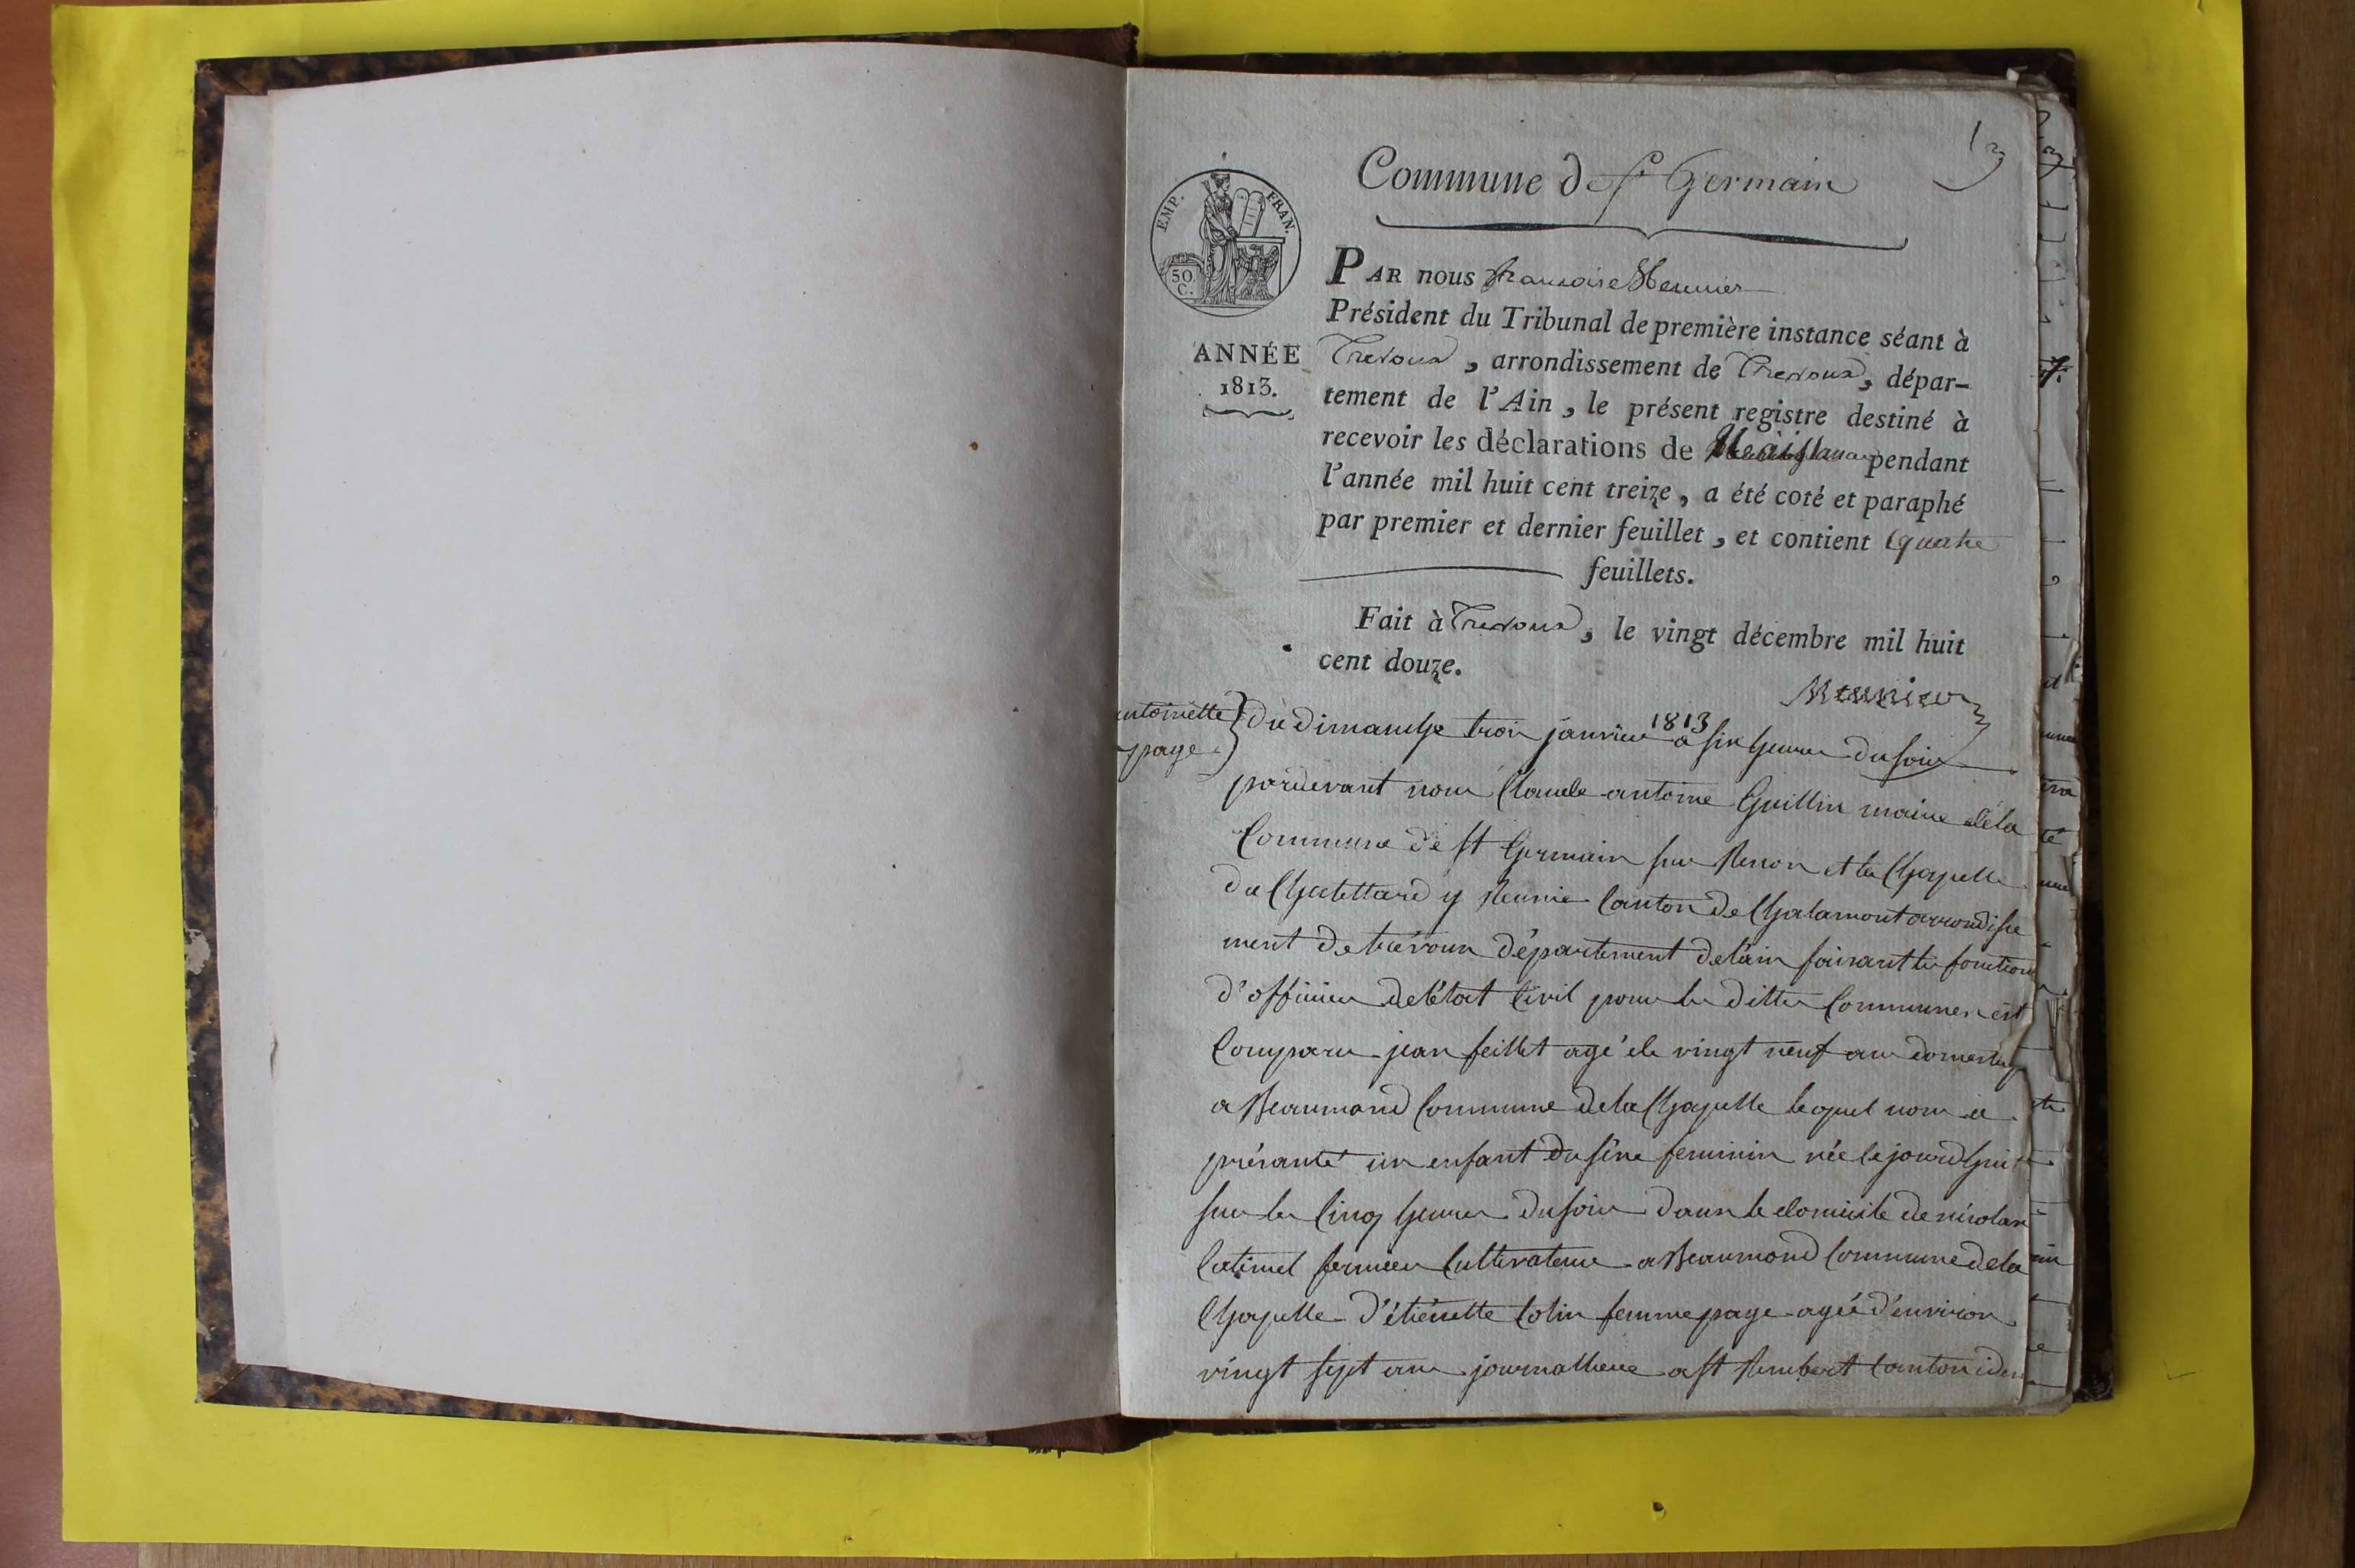 Commune de St Germain
EMP. FRAN.
50 C.
ANNÉE
1813.
PAR nous françois Meunier
Président du Tribunal de première instance séant à
Trevoux, arrondissement de Trevoux, dépar-
tement de l'Ain, le présent registre destiné à
recevoir les déclarations de Naissance pendant
l'année mil huit cent treize, a été coté et paraphé
par premier et dernier feuillet, et contient quatre
feuillets.
Fait à Trevoux, le vingt décembre mil huit
cent douze.
Meunier
antoinette
page
du dimanche trois janvier 1813 a six heures du soir
pardevant nous Claude antoine Guillin maire de la
Commune de st Germain sur Renon et la Chapelle
du Chatellard y Reunie Canton de Chalamont arrondisse
ment de trévoux département de lain faisant les fonctions
d'officier de létat Civil pour les dittes Communes est
Comparu jean feillet agé de vingt neuf ans domestiq
a Beaumond Commune de la Chapelle lequel nous a
présanté un enfant du séxe feminin née le jourdhui
sur les Cinq heures du soir dans le domicile de nicolas
Catimel fermier Cultivateur a Beaumond Commune de la
Chapelle d'étiénette Colin femme page agée d'environ
vingt sept ans journalliere a st Rembert Canton idem